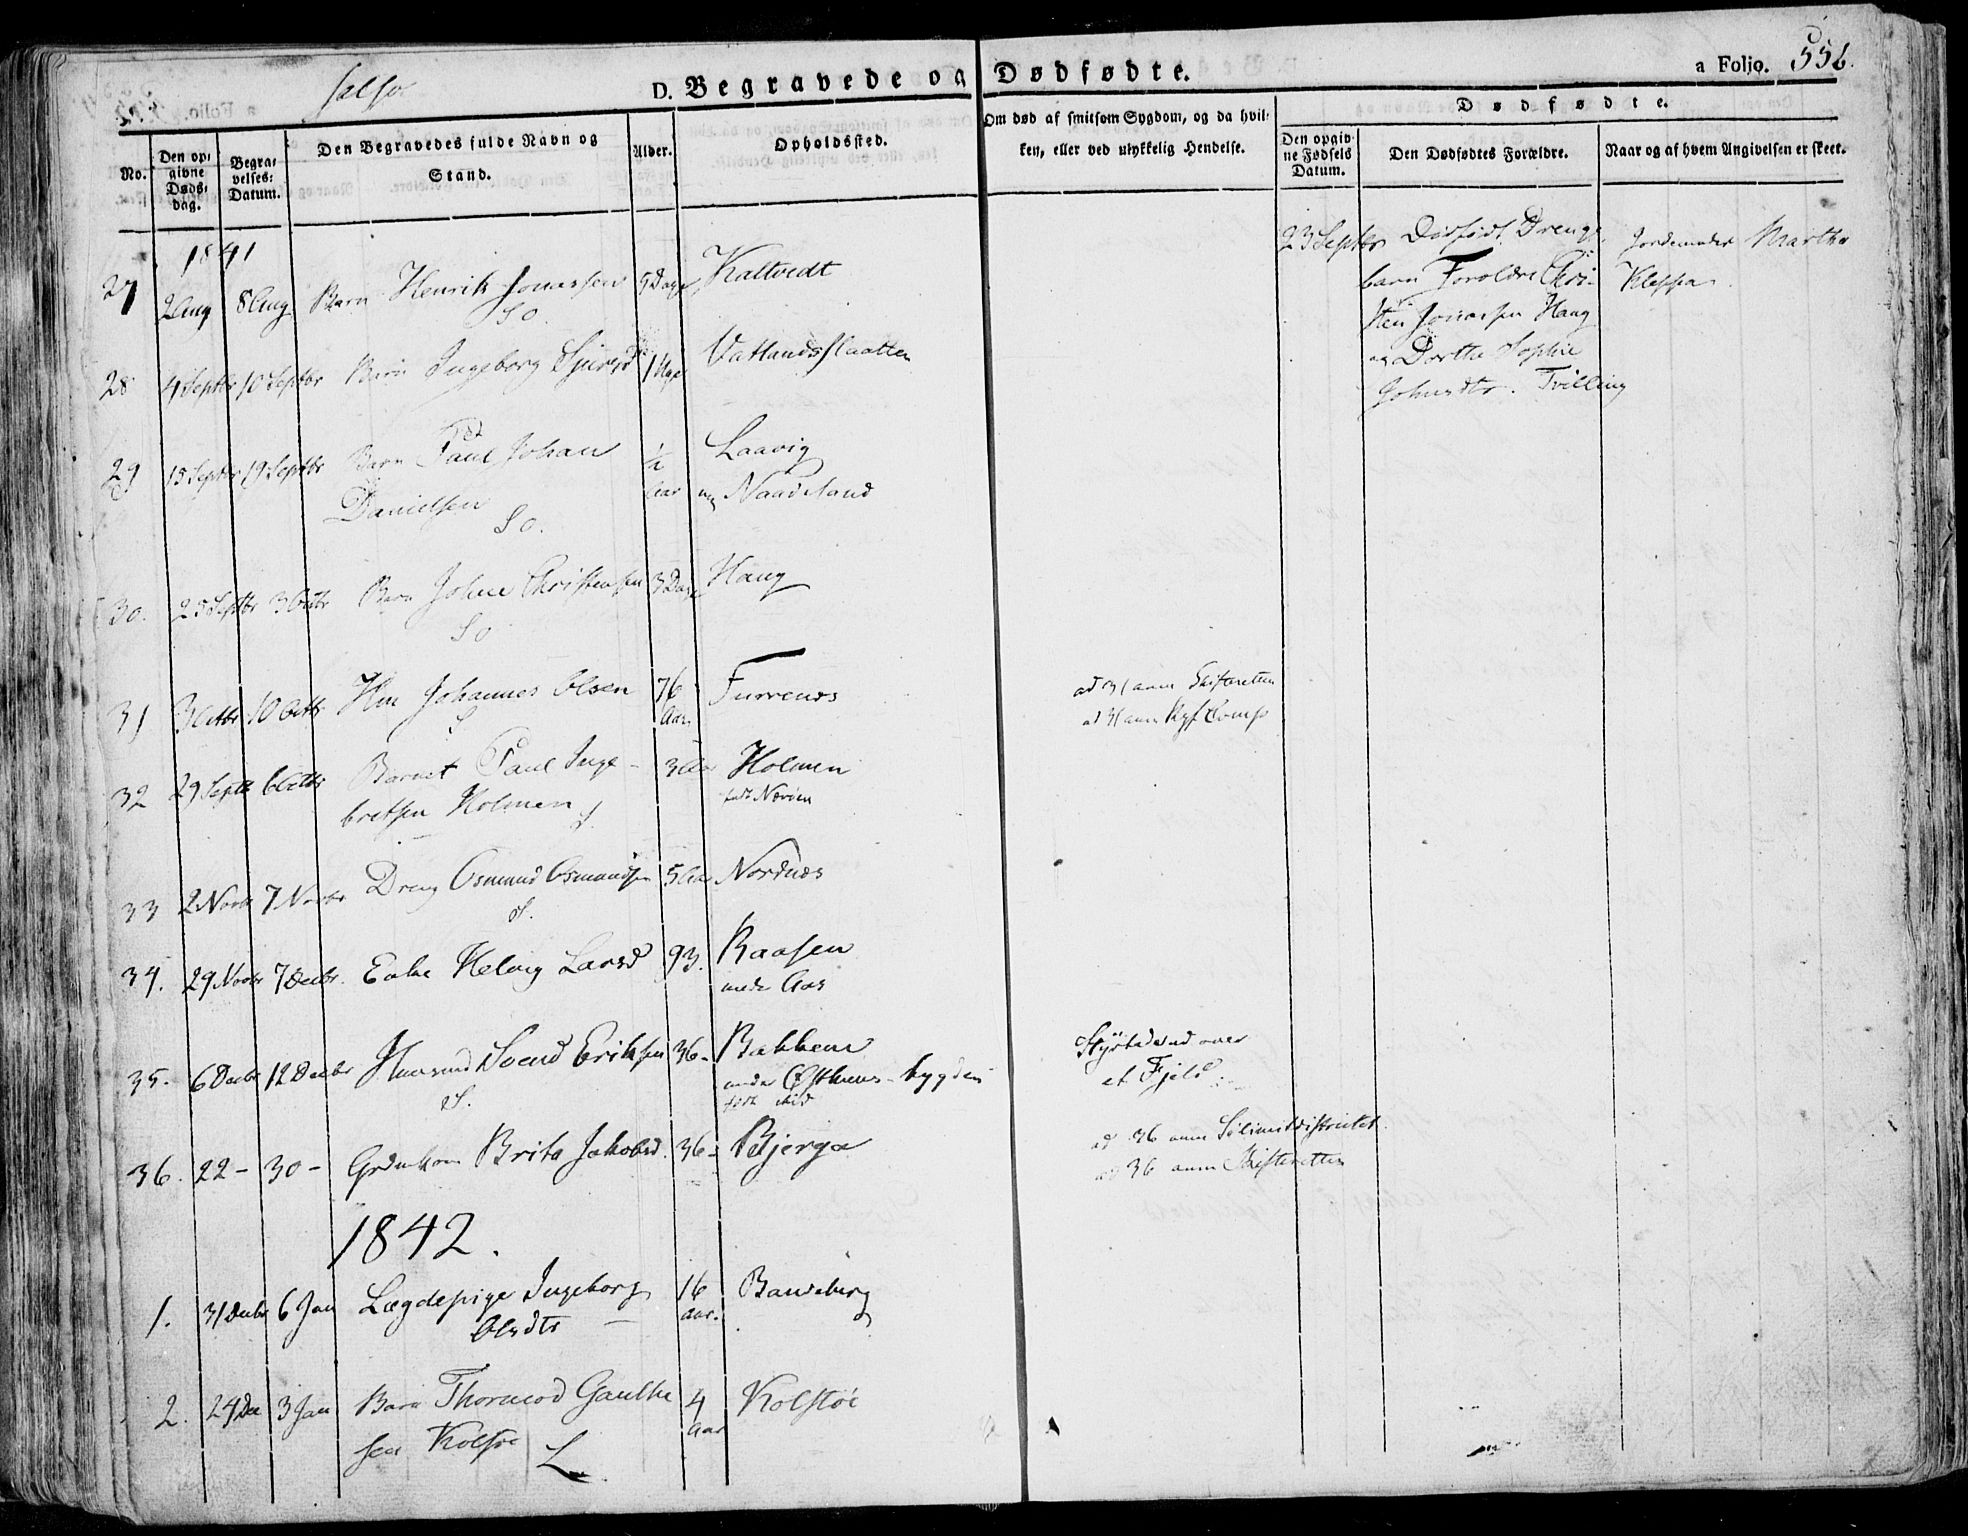 D. Begravede og Dødfødte.
a Folio. 556.
No.
Den opgivne Dødsdag.
Begravelses-Datum.
Den Begravedes fulde Navn og Stand.
Alder.
Opholdssted.
Om død af smitsom Sygdom, og da hvilken, eller ved ulykkelig Hendelse.
Dødfødte.
Den opgivne Fødsels Datum.
Den Dødfødtes Forældre.
Naar og af hvem Angivelsen er skeet.
1841
27 2 Aug 8 Aug Barn Henrik Jonassen 5 Dage Kaltvedt
So.
28 4 Septbr 10 Septbr Barn Ingeborg 1 Uge Vatlandsflaatten
29 15 Septbr 19 Septbr Barn Paul Johan ½ Aar Laavig
Danielsen og Naadeland
So.
30. 25 Septbr 3 Octbr Barn Johne Christensen 3 Dage Haug
So
31 3 Octbr 10 Octbr Johannes Olsen 76 Aar Furrenes
ad 31 anm Skifteretten
ad 31 anm
32 29 Septbr 6 Octbr Barnet Paul Inge- 3 Aar Holmen
bretsen Holmen
33 2 Novbr 7 Novbr Dreng Osmund Osmundsen 5 Aar Nordnes
34. 29 Novbr 7 Decbr. Enke Helvig Larsd 93. Raasen
under Aas
35. 6 Decbr 12 Decbr Huusmd Svend Eriksen 36- Bakken
under Østhuus-bygden
Styrtede ud over
et Fjeld
36. 22- 30- Grdmkone Brita Jakobsd. 36- Bjerga
ad 36 anm
ad 36 anm Skifteretten
1842.
1. 31 Decbr 6 Jan Lægdepige Ingeborg 16 Aar. Bandeberg
Olsdtr
2. 24 Dec 3 Jan Barn Thormod Gauthe 4 Aar Kolstøe
sen
23 Septbr Dødfødt Drenge
barn Forældre Chri-
sten Jonassen Haug
og Dorthe Sophie
Johnsdtr. Tvilling
Jordemoder Martha
Kleppa.